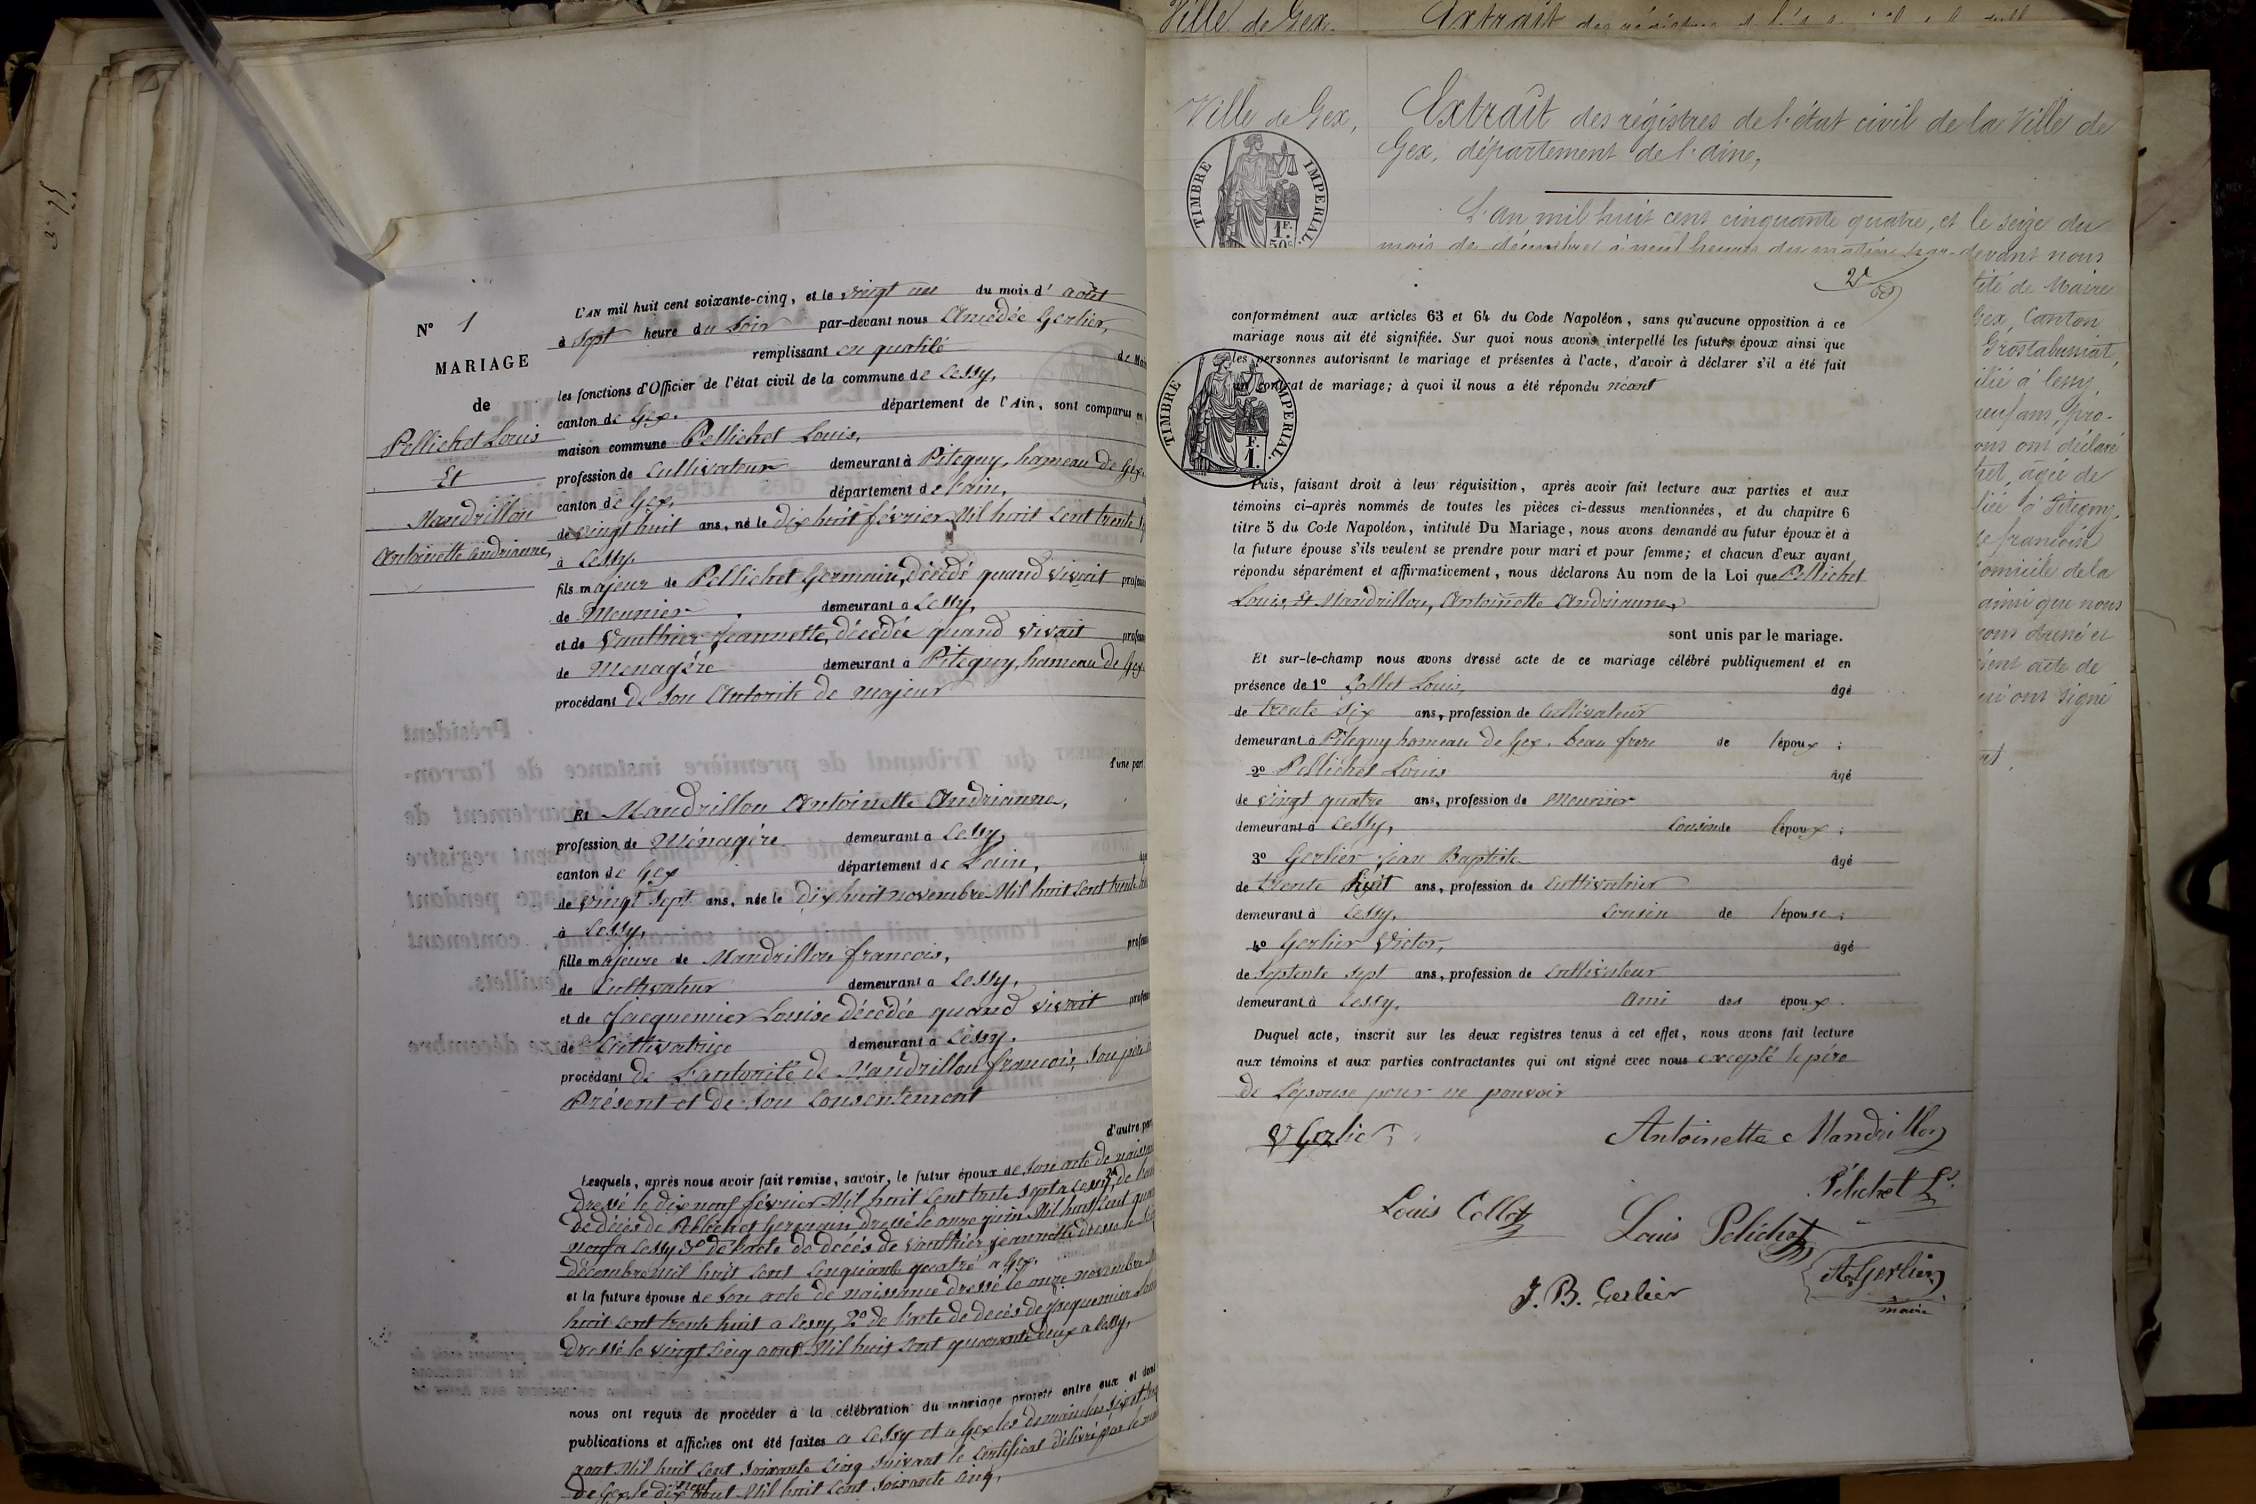 N° 1
MARIAGE
de
Pellichet Louis
Et
Mandrillon
Antoinette Andrianne,
L'AN mil huit cent soixante-cinq, et le vingt un du mois d' août
à sept heure du soir par-devant nous Amédée Gerlier,
remplissant en qualité de Mair
les fonctions d'Officier de l'état civil de la commune de Cessy,
canton de Gex. département de l'Ain, sont comparus en
maison commune Pellichet Louis,
profession de Cultivateur demeurant à Pitegny, hameau de Gex.
canton de Gex, département de l'ain,
de vingt huit ans, né le dix huit février Mil huit cent trente
à Cessy.
fils majeur de Pellichet Germain, décédé quand vivait
de Meunier demeurant à Cessy,
et de Vauthier Jeannette, décédée quand vivait
de Menagére demeurant à Pitegny, hameau de Gex
procédant de son Autorité de majeur
d'une part.
Et Mandrillon Antoinette Andrianne,
profession de Ménagére demeurant à Cessy,
canton de Gex département de L'ain,
de vingt sept ans, née le dix huit novembre Mil huit cent trente
à Cessy,
fille majeure de Mandrillon francois,
de Cultivateur demeurant à Cessy,
et de Jacquemier Louise décédée quand vivait
de Cultivatrice demeurant à Cessy.
procédant de L'autorité de Mandrillon francois, son père
Présent et de son consentement
d'autre part
Lesquels, après nous avoir fait remise, savoir, le futur époux de son acte de
Dressé le dix neuf février Mil huit cent trente sept a Cessy, 2° de
de décès de Pellichet Germain dressé le onze juin Mil huit cent
neuf a Cessy 3° de l'acte de décès de Vauthier Jeannette dressé le
décembre mil huit cent cinquante quatre a Gex.
et la future épouse de son acte de naissance dressé le onze novembre
huit cent trente huit a Cessy, 2° de l'acte de decés de Jacquemier
dressé le vingt cinq aout Mil huit cent quarante deux a Cessy,
nous ont requis de procéder à la célébration du mariage projeté entre eux et dont
publications et affiches ont été faites a Cessy et a Gex les dimanches six et
aout Mil huit cent soixante cinq suivant le certificat délivré par le
de Gex le dix neuf aout Mil huit cent soixante cinq,
Ville de Gex.
Extrait
Ville de Gex,
Extrait des régistres de l'état civil de la Ville de
Gex, département de l'ain,
TIMBRE IMPERIAL.
1F.
50c
L'an mil huit cent cinquante quatre, et le seize du
mois de décembre à neuf heures du matin par-devant nous
de Maire
Gex, Canton
à Cessy
ont déclaré
agée de
domicile de la
ainsi que nous
acte de
ont signé
2e
conformément aux articles 63 et 64 du Code Napoléon, sans qu'aucune opposition à ce
mariage nous ait été signifiée. Sur quoi nous avons interpellé les futurs époux ainsi que
les personnes autorisant le mariage et présentes à l'acte, d'avoir à déclarer s'il a été fait
un contrat de mariage; à quoi il nous a été répondu néant
TIMBRE IMPERIAL.
F.
1.
Puis, faisant droit à leur réquisition, après avoir fait lecture aux parties et aux
témoins ci-après nommés de toutes les pièces ci-dessus mentionnées, et du chapitre 6
titre 5 du Code Napoléon, intitulé Du Mariage, nous avons demandé au futur époux et à
la future épouse s'ils veulent se prendre pour mari et pour femme; et chacun d'eux ayant
répondu séparément et affirmativement, nous déclarons Au nom de la Loi que Pellichet
Louis, Et Mandrillon, Antoinette Andrianne,
sont unis par le mariage.
Et sur-le-champ nous avons dressé acte de ce mariage célébré publiquement et en
présence de 1° Collet Louis, âgé
de trente six ans, profession de Cultivateur
demeurant à Pitegny hameau de Gex. beau frere de l'époux ;
2° Pellichet Louis âgé
de vingt quatre ans, profession de Meunier
demeurant à Cessy, Cousin de l'époux ;
3° Gerlier Jean Baptiste âgé
de trente huit ans, profession de Cultivateur
demeurant à Cessy. Cousin de l'épouse ;
4° Gerlier Victor, âgé
de septente sept ans, profession de Cultivateur
demeurant à Cessy. ami des époux.
Duquel acte, inscrit sur les deux registres tenus à cet effet, nous avons fait lecture
aux témoins et aux parties contractantes qui ont signé avec nous excepté le pére
de L'épouse pour ne pouvoir
V Gerlier
Antoinette Mandrillon
Pélichet Ls.
Louis Collet
Louis Pelichet
J. B. Gerlier
A. Gerlier
maire